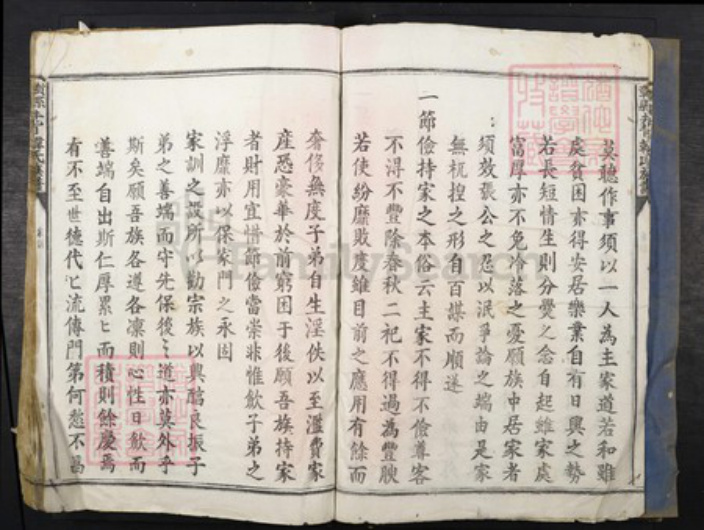 莫聽作事須以一人為主家道若和雖
處貧困亦得安居樂業自有日興之勢
若長短情生則分爨之念自起雖家處
富厚亦不免冷落之憂願族中居家者
須效張公之忍以泯爭論之端由是家
無杌揑之形自百謀而順遂
一節儉持家之本俗云主家不得不儉尊客
不得不豐除春秋二祀不得過為豐腴
若使紛靡敗度雖目前之應用有餘而
奢侈無度子弟自生淫佚以至濫費家
產恐豪華於前窮困于後願吾族持家
者財用宜惜節儉當崇非惟飲子弟之
浮靡亦以保家門之永固
家訓之設所以勸宗族以興醕良振子
弟之善端而守先保後之道亦莫外乎
斯矣願吾族各遵各凜則心性日飲而
善端自出斯仁厚累匕而積則餘慶焉
有不至世德代匕流傳門第何愁不昌
FamilySearch